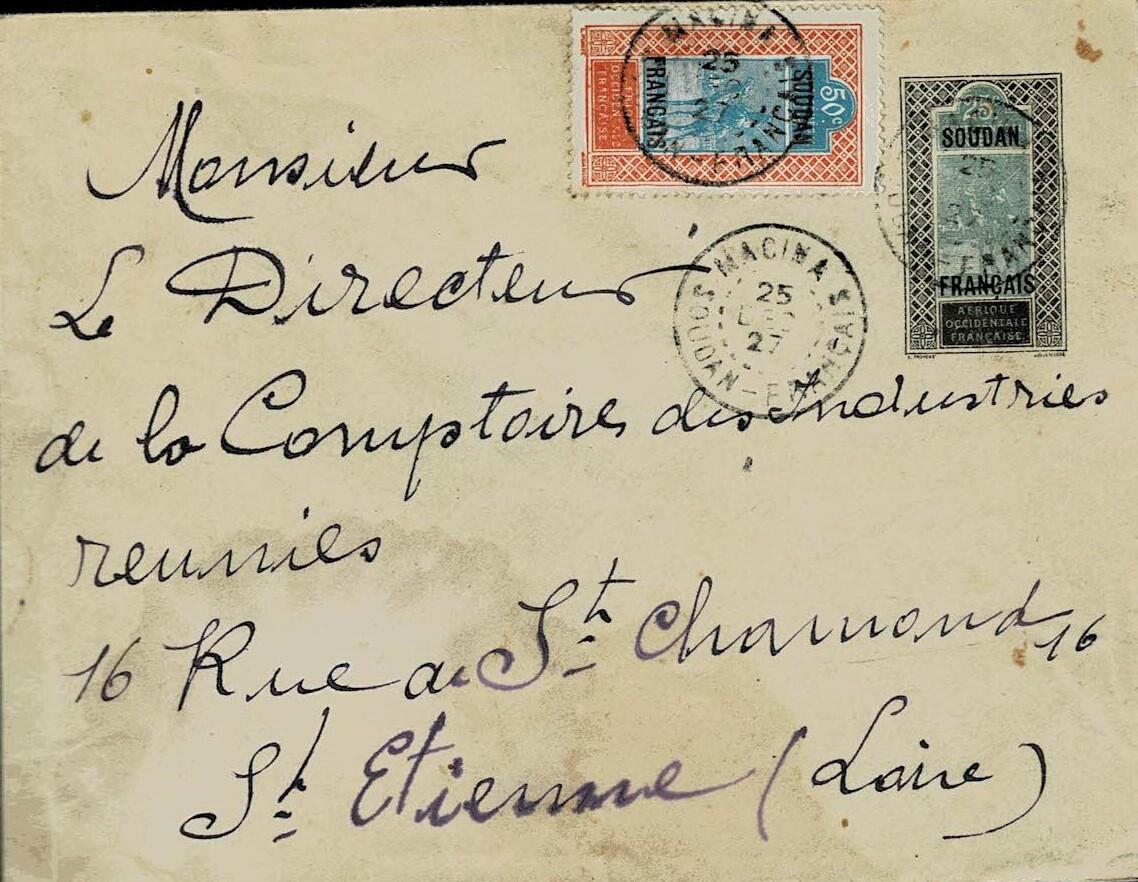 MACINA
25
SOUDAN
FRANÇAIS
50c
AFRIQUE
OCCIDENTALE
FRANÇAISE
25c
SOUDAN
25
FRANÇAIS
AFRIQUE
OCCIDENTALE
FRANÇAISE
MACINA
25
DEC
27
SOUDAN-FRANÇAIS
Monsieur
Le Directeur
de la Comptoires des Industries
reunies
16 Rue de St. Chamond 16
St. Etienne (Loire)